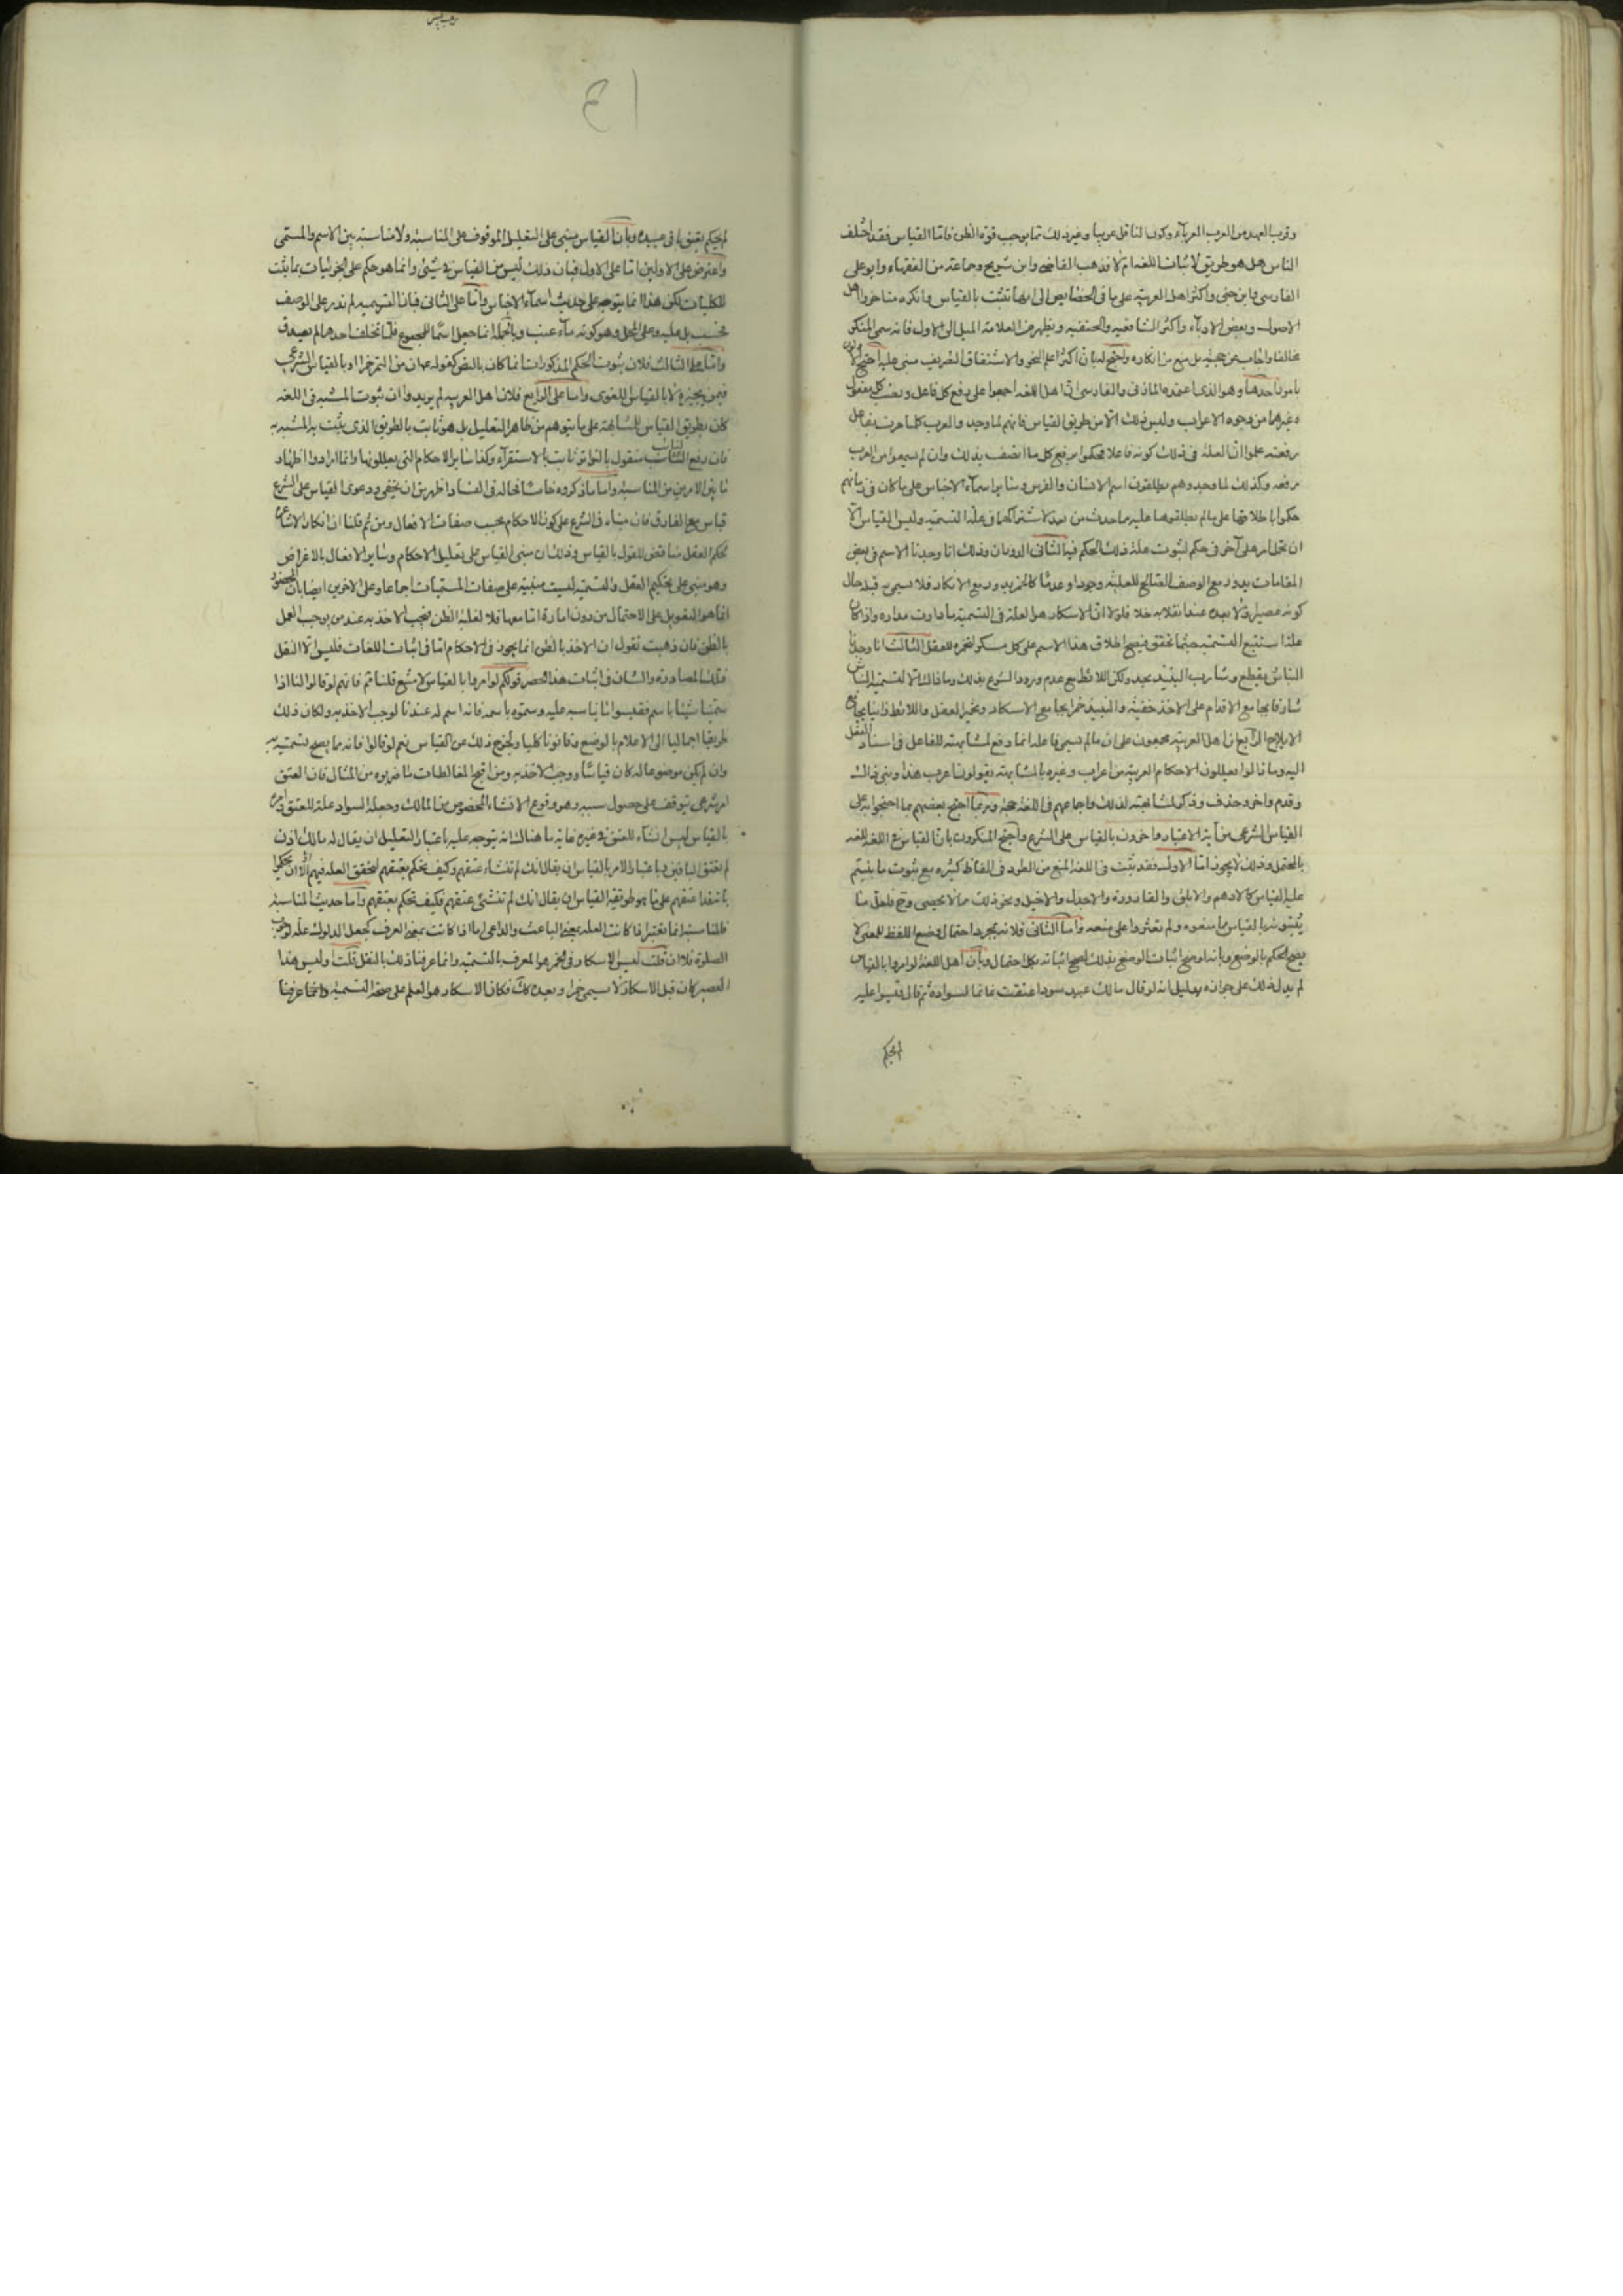 وقرب العهد من العرب العرباء وكون الناقل عربيا وغير ذلك مما يوجب قوة الظن فاما القياس فقد اختلف
الناس هل هو طريق لاثبات اللغة ام لا فذهب القاضي وابن شريح وجماعة من الفقهاء وابو علي
الفارسي وابن جني واكثر اهل العربية على ما في الخصايص الى انها تثبت بالقياس وانكره متاخروا اهل
الاصول وبعض الادباء واكثر الشافعية والحنفية ويظهر من العلامة الميل الى الاول فانه سمى المنكر
مخالفا واجاب عن حججه بل منع من انكاره واحتج له بان اكثر علم النحو والاشتقاق التصريف مبني عليه احتج الاولون
بامور احدها وهو الذي اعتمده المازني والفارسي ان اهل اللغة اجمعوا على رفع كل فاعل ونصب كل مفعول
وغيرهما من وجوه الاعراب وليس ذلك الا من طريق القياس فانهم لما وجدوا العرب كلما مرت بفاعل
رفعته علموا ان العلة في ذلك كونه فاعلا فحكموا برفع كل ما اتصف بذلك وان لم يسمعوا من العرب
رفعه وكذلك لما وجدوهم يطلقون اسم الانسان والفرس وساير اسماء الاجناس على ما كان في زمانهم
حكموا باطلاقها على ما لم يطلقوها عليه مما حدث من بعد لاشتراكها في علة التسمية وليس القياس الا
ان تحمل امر على آخر في حكم لثبوت علة ذلك الحكم فيه الثاني الدوران وذلك انا وجدنا الاسم في بعض
المقامات يدور مع الوصف الصالح للعلية وجودا وعدما كالخمر يدور مع الاسكار فلا يسمى به قبله حال
كونه عصيرا ولا بعده عند انقلابه خلا فلولا ان الاسكار هو العلة في التسمية ما دارت مداره واذا كان
علة استتبع التسمية حيثما تحقق فيصح اطلاق هذا الاسم على كل مسكر لتخمره للعقل الثالث انا وجدنا
النباش يقطع وشارب النبيذ يحد وكل اللائط مع عدم ورود الشرع بذلك وما ذاك الا لتسمية النباش
سارقا بجامع الاقدام على الاخذ خفية والنبيذ خمرا بجامع الاسكار وتخير العقل واللائط زانيا بجامع
الايلاج الرابع ان اهل العربية مجمعون على ان ما لم يسمى فاعله انما رفع لمشابهته للفاعل في اسناد الفعل
اليه وما زالوا يعللون الاحكام العربية من اعراب وغيره بالمشابهة يقولون اعرب هذا وبني ذاك
وقدم واخر وحذف وذكر لمشابهته لذلك واجماعهم في اللغة حجة وربما احتج بعضهم بما احتجوا به على
القياس الشرعي من آية الاعتبار واخرون بالقياس على الشرع واحتج المنكرون بان القياس في اللغة للغة
بالمحتمل وذلك لا يجوز اما الاول فقد ثبت في اللغة المنع من الطرد في الفاظ كثيرة مع ثبوت ما بنيتم
عليه القياس كالادهم والابلق والقارورة والاجدل والاخيل ونحو ذلك مما لا يحصى وح فلعل ما
يثبتونه بالقياس مما منعوه ولم تعثروا على منعه واما الثاني فلانه بمجرد احتمال وضع اللفظ للمعنى لا
يصح الحكم بالوضع وبانه لو صح اثبات الوضع بذلك لصح اثباته بكل احتمال وبان اهل اللغة لو امروا بالقياس
لم يدل ذلك على جوازه بدليل انه لو قال مالك عبيد سود اعتقت غانما لسواده ثم قال قيسوا عليه
لم يحكم
لم يحكم بعتق باقي عبيده وبان القياس مبني على التعليل الموقوف على المناسبة ولا مناسبة بين الاسم والمسمى
واعترض على الاولين اما على الاول فبان ذلك ليس من القياس في شيء وانما هو حكم على الجزئيات بما يثبت
للكليات لكن هذا انما يتوجه على حديث اسماء الاجناس واما على الثاني فبان التسمية لم تدر على الوصف
فحسب بل عليه وعلى المحل وهو كونه ماء عنب وبالجملة انما جعل اسما للمجموع فلما تخلف احدهما لم يصدق
واما على الثالث فلان ثبوت الحكم المذكور انما كان بالنص كقوله ان من التمر خمرا او بالقياس الشرعي
فيمن يجيزه لا بالقياس اللغوي واما على الرابع فلان اهل العربية لم يريدوا ان ثبوت المشبه في اللغة
كان بطريق القياس للمشابهة على ما يتوهم من ظاهر التعليل بل هو ثابت بالطريق الذي يثبت به المشبه به
فان رفع النائب منقول بالتواتر ثابت بالاستقراء وكذا ساير الاحكام التي يعللونها وانما ارادوا اظهار
ما بين الامرين من المناسبة واما ما ذكروه خامسا فحاله في الفساد اظهر من ان يخفى ودعوى القياس على الشرع
قياس مع الفارق فان مبناه في الشرع على كون الاحكام بحسب صفات الافعال ومن ثم قلنا ان انكار الاشاعرة
لحكم العقل مناقض للقول بالقياس وذلك ان مبنى القياس على تعليل الاحكام وساير الافعال بالاغراض
وهو مبني على تحكيم العقل والتسمية ليست مبنية على صفات المسميات اجماعا وعلى الاخرين ايضا بان المحظور
انما هو التعويل على الاحتمال من دون امارة اما معها فلا لغلبة الظن فيجب الاخذ به عند من يوجب العمل
بالظن فان ذهبت تقول ان الاخذ بالظن انما يجوز في الاحكام اما في اثبات اللغات فليس الا النقل
فتلك المصادرة والشان في اثبات هذا الحصر قولكم لو امروا بالقياس لامتنع قلنا ثم فانهم لو قالوا لنا اذا
سمينا شيئا باسم فقيسوا ما يناسبه عليه وسموه باسمه فانه اسم له عندنا لوجب الاخذ به ولكان ذلك
طريقا اجماليا الى الاعلام بالوضع وقانونا كليا ولخرج ذلك من القياس نعم لو قالوا فانه مما يصلح تسميته به
وان لم يكن موضوعا له كان قياسا ووجب الاخذ به ومن اقبح المغالطات ما ضربوه من المثال فان العتق
امر شرعي يتوقف على حصول سببه وهو وقوع الانشاء المخصوص من المالك وجعله السواد علة للعتق وامره
بالقياس ليس انشاء للعتق في غيره غاية ما هناك انه يتوجه عليه باعتبار التعليل ان يقال له مالك اذن
لم تعتق الباقين وباعتبار الامر بالقياس ان يقال انك لم تنشاء عتقهم وكيف تحكم بعتقهم لتحقق العلة فيهم الا ان تحكم
بانعقاد عتقهم على ما هو طريقة القياس ان يقال انك لم تنشئ عتقهم فكيف تحكم بعتقهم واما حديث المناسبة
فالمناسبة انما تعتبر اذا كانت العلة بمعنى الباعث والداعي اما اذا كانت بمعنى المعرف كجعل الدلوك علة لوجوب
الصلوة فلا فان قلت ليس الاسكار في الخمر هو المعرف بالتسمية وانما عرفنا ذلك بالنقل قلت وليس هذا
العصير كان قبل الاسكار لا يسمى خمرا وبعده كك فكان الاسكار هو العلم على صحة التسمية وانما عرفنا